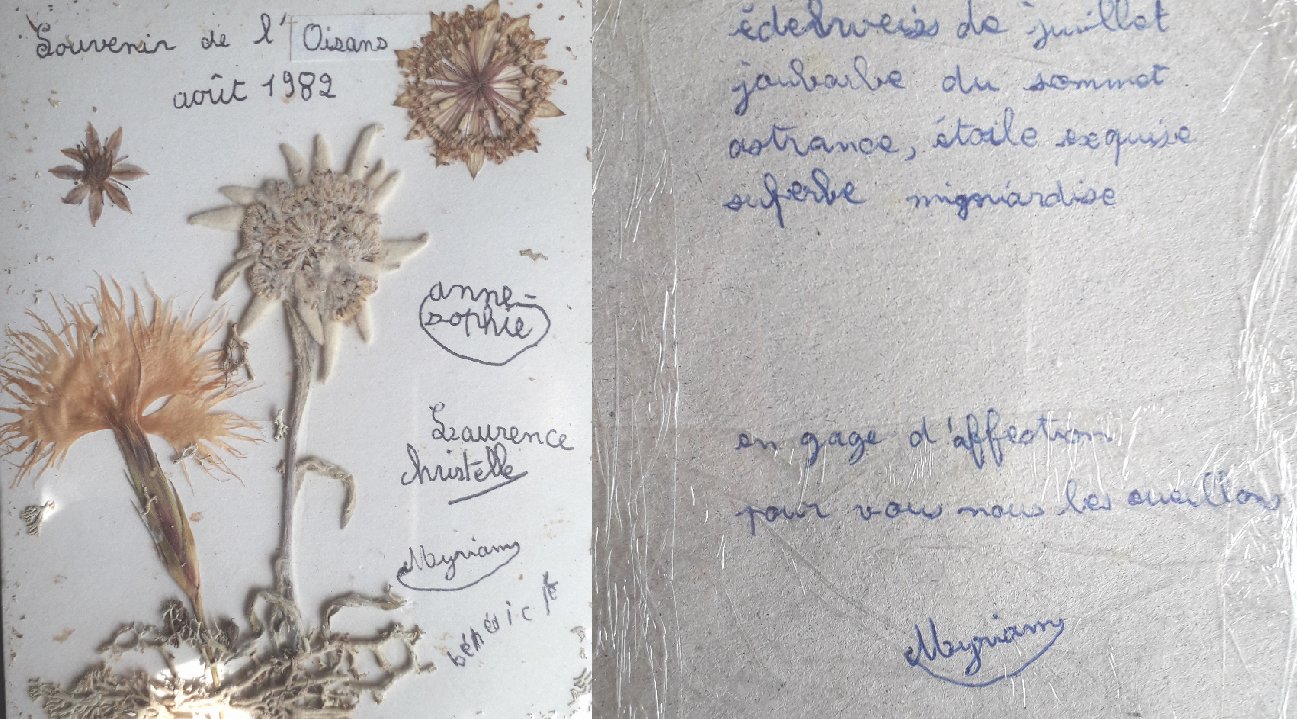 Souvenir de l'Oisans
août 1982
anne-
sophie
Laurence
christelle
Myriam
bénédicte
édelweiss de juillet
joubarbe du sommet
astrance, étoile exquise
superbe migniardise
en gage d'affection
pour vous nous les cueillons
Myriam